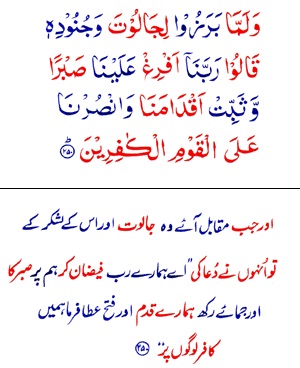 وَلَمَّا بَرَزُوْا لِجَالُوْتَ وَجُنُوْدِهٖ
قَالُوْا رَبَّنَاۤ اَفْرِغْ عَلَيْنَا صَبْرًا
وَّثَبِّتْ اَقْدَامَنَا وَانْصُرْنَا
عَلَى الْقَوْمِ الْكٰفِرِيْنَ ؕ ﴿۲۵۰﴾
اور جب مقابل آئے وہ جالوت اور اس کے لشکر کے
تو اُنہوں نے دُعا کی "اے ہمارے رب فیضان کر ہم پر صبر کا
اور جمائے رکھ ہمارے قدم اور فتح عطا فرما ہمیں
کافر لوگوں پر" ﴿۲۵۰﴾